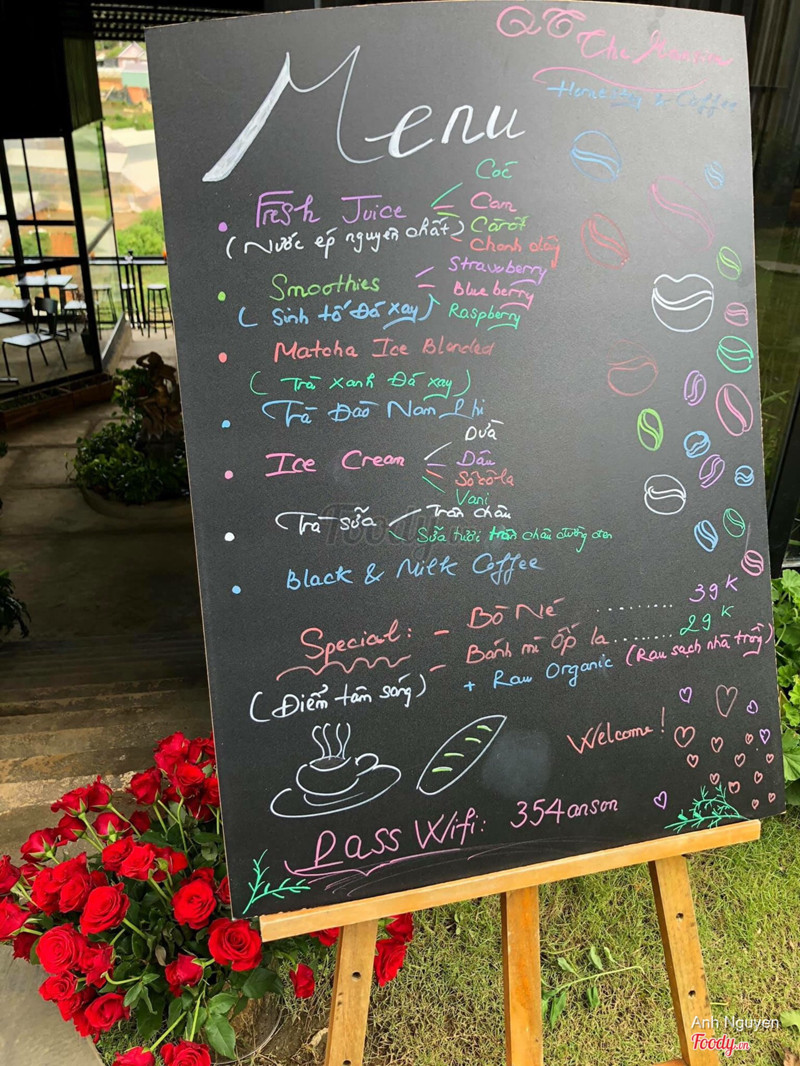 QT The
Homestay & Coffee
Menu
Fresh Juice
Cóc
Cam
Càrốt
Chanh dây
(Nước ép nguyên chất)
Smoothies
Strawberry
Blueberry
Raspberry
(Sinh tố Đá xay)
Matcha Ice Blended
(Trà Xanh Đá xay)
Trà Đào Nam Phi
Ice Cream
Dừa
Dâu
Sôcôla
Vani
Trà sữa
Trân châu
Sữa tươi trân châu đường đen
Black & Milk Coffee
Special: - Bò Né ......... 39K
- Bánh mì ốp la ........ 29K
(Điểm tâm sáng) + Rau Organic (Rau sạch nhà trồng)
Welcome!
Pass Wifi: 354anson
Foody.vn
Anh Nguyen
Foody.vn